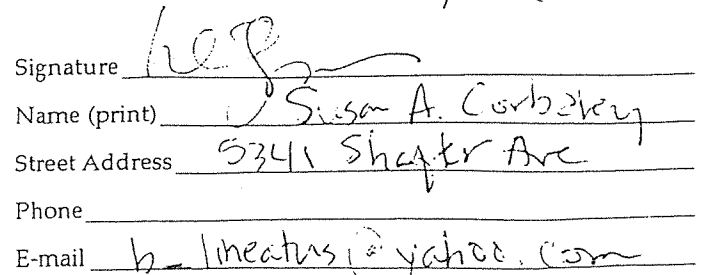 Signature
Name (print) Susan A.
Street Address 5341 Shafter Ave
Phone
E-mail b_lineatus@yahoo.com